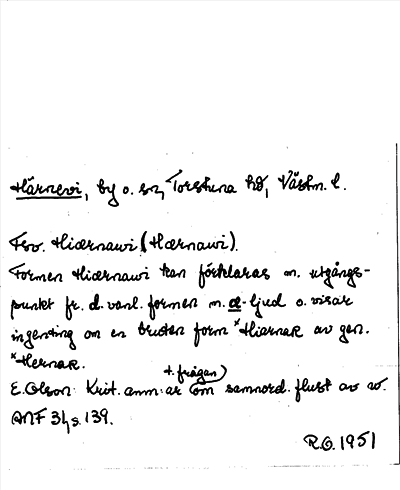 Härnevi, by o. sn, Torstuna hd, Västm. l.
Fsv. Hiærnawi (Hærnawi).
Formen Hiærnawi kan förklaras m. utgångs-
punkt fr. d. vanl. formen m. æ-ljud o. visar
ingenting om en bruten form *Hiarnar av gen.
*Hernar.
t. frågan
E. Olson: Krit. anm:ar (om samnord. flust av w.
ANF 31, s. 139.
R.O. 1951